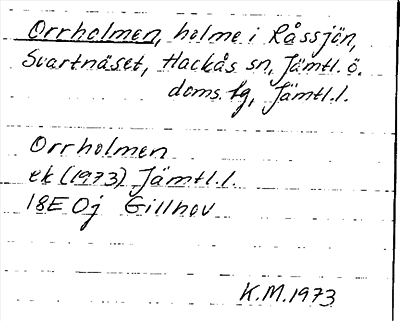 Orrholmen, holme i Råssjön,
Svartnäset, Hackås sn, Jämtl. ö.
doms. fg, Jämtl. l.
Orrholmen
ek (1973) Jämtl. l.
18E Oj Gillhov
K.M. 1973